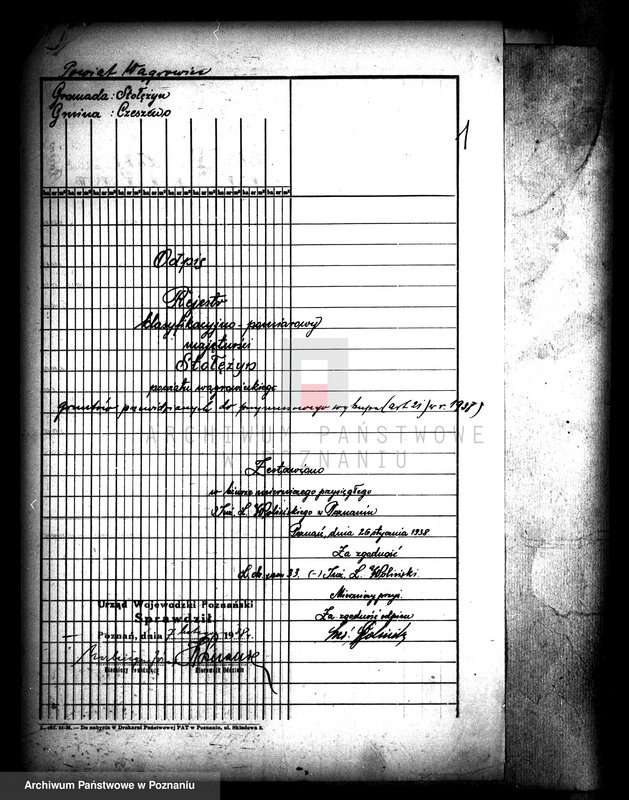 Powiat Wągrowiec
Gromada: Stołężyn
Gmina: Czeszewo
1
Odpis
Rejestr
klasyfikacyjno-pomiarowy
majętności
Stołężyn
powiatu wągrowieckiego
gruntów przewidzianych do przymusowego wykupu (art. 21) w r. 1938)
ARCHIWUM PAŃSTWOWE
W POZNANIU
Zestawiono
w biurze mierniczego przysięgłego
Inż. L. Wolińskiego w Poznaniu
Poznań, dnia 26 stycznia 1938
Za zgodność
L. dz. pom 33. (-) Inż. L. Woliński
Mierniczy przys.
Za zgodność odpisu
Urząd Wojewódzki Poznański
Sprawdził
Poznań, dnia 7 1938 r.
Kierownik Oddziału
L. obf. 51-M. — Do nabycia w Drukarni Państwowej PAT w Poznaniu, ul. Składowa 5.
Archiwum Państwowe w Poznaniu